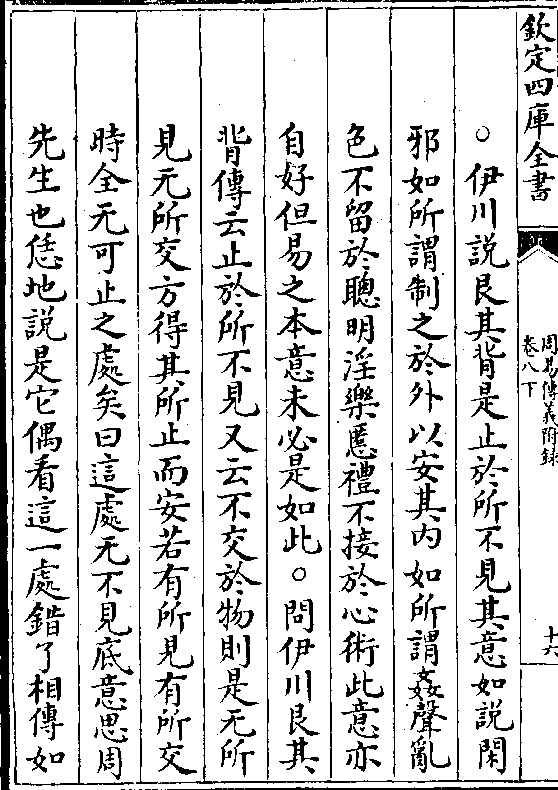 欽定四庫全書
周易傳義附録
卷八下
十六
○伊川說艮其背是止於所不見其意如說閑
邪如所謂制之於外以安其内如所謂姦聲亂
色不留於聰明淫樂慝禮不接於心術此意亦
自好但易之本意未必是如此○問伊川艮其
背傳云止於所不見又云不交於物則是无所
見无所交方得其所止而安若有所見有所交
時全无可止之處矣曰這處无不見底意思周
先生也恁地說是它偶看這一處錯了相傳如